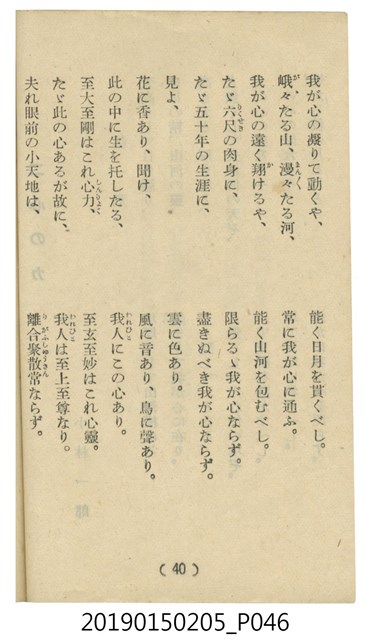 我が心の凝りて動くや、
能く日月を貫くべし。
峨々たる山、漫々たる河、
常に我が心に通ふ。
我が心の遠く翔けるや、
能く山河を包むべし。
たゞ六尺の肉身に、
限らるゝ我が心ならず。
たゞ五十年の生涯に、
盡きぬべき我が心ならず。
見よ、
雲に色あり。
花に香あり、聞け、
風に音あり、鳥に聲あり。
此の中に生を托したる、
我人にこの心あり。
至大至剛はこれ心力、
至玄至妙はこれ心靈。
たゞ此の心あるが故に、
我人は至上至尊なり。
夫れ眼前の小天地は、
離合聚散常ならず。
( 40 )
20190150205_P046